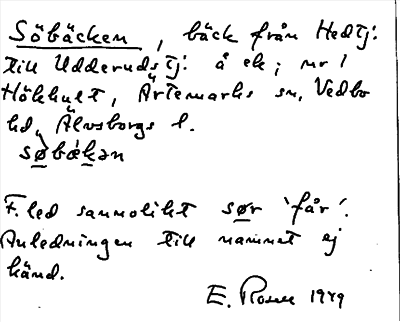 Söbäcken, bäck från Hedtj:
till Udderudstj: å ek; nr 1
Hökhult, Ärtemarks sn, Vedbo
hd, Älvsborgs l.
søbækən
F.led sannolikt sør 'får'.
Anledningen till namnet ej
känd.
E. Rosen 1949